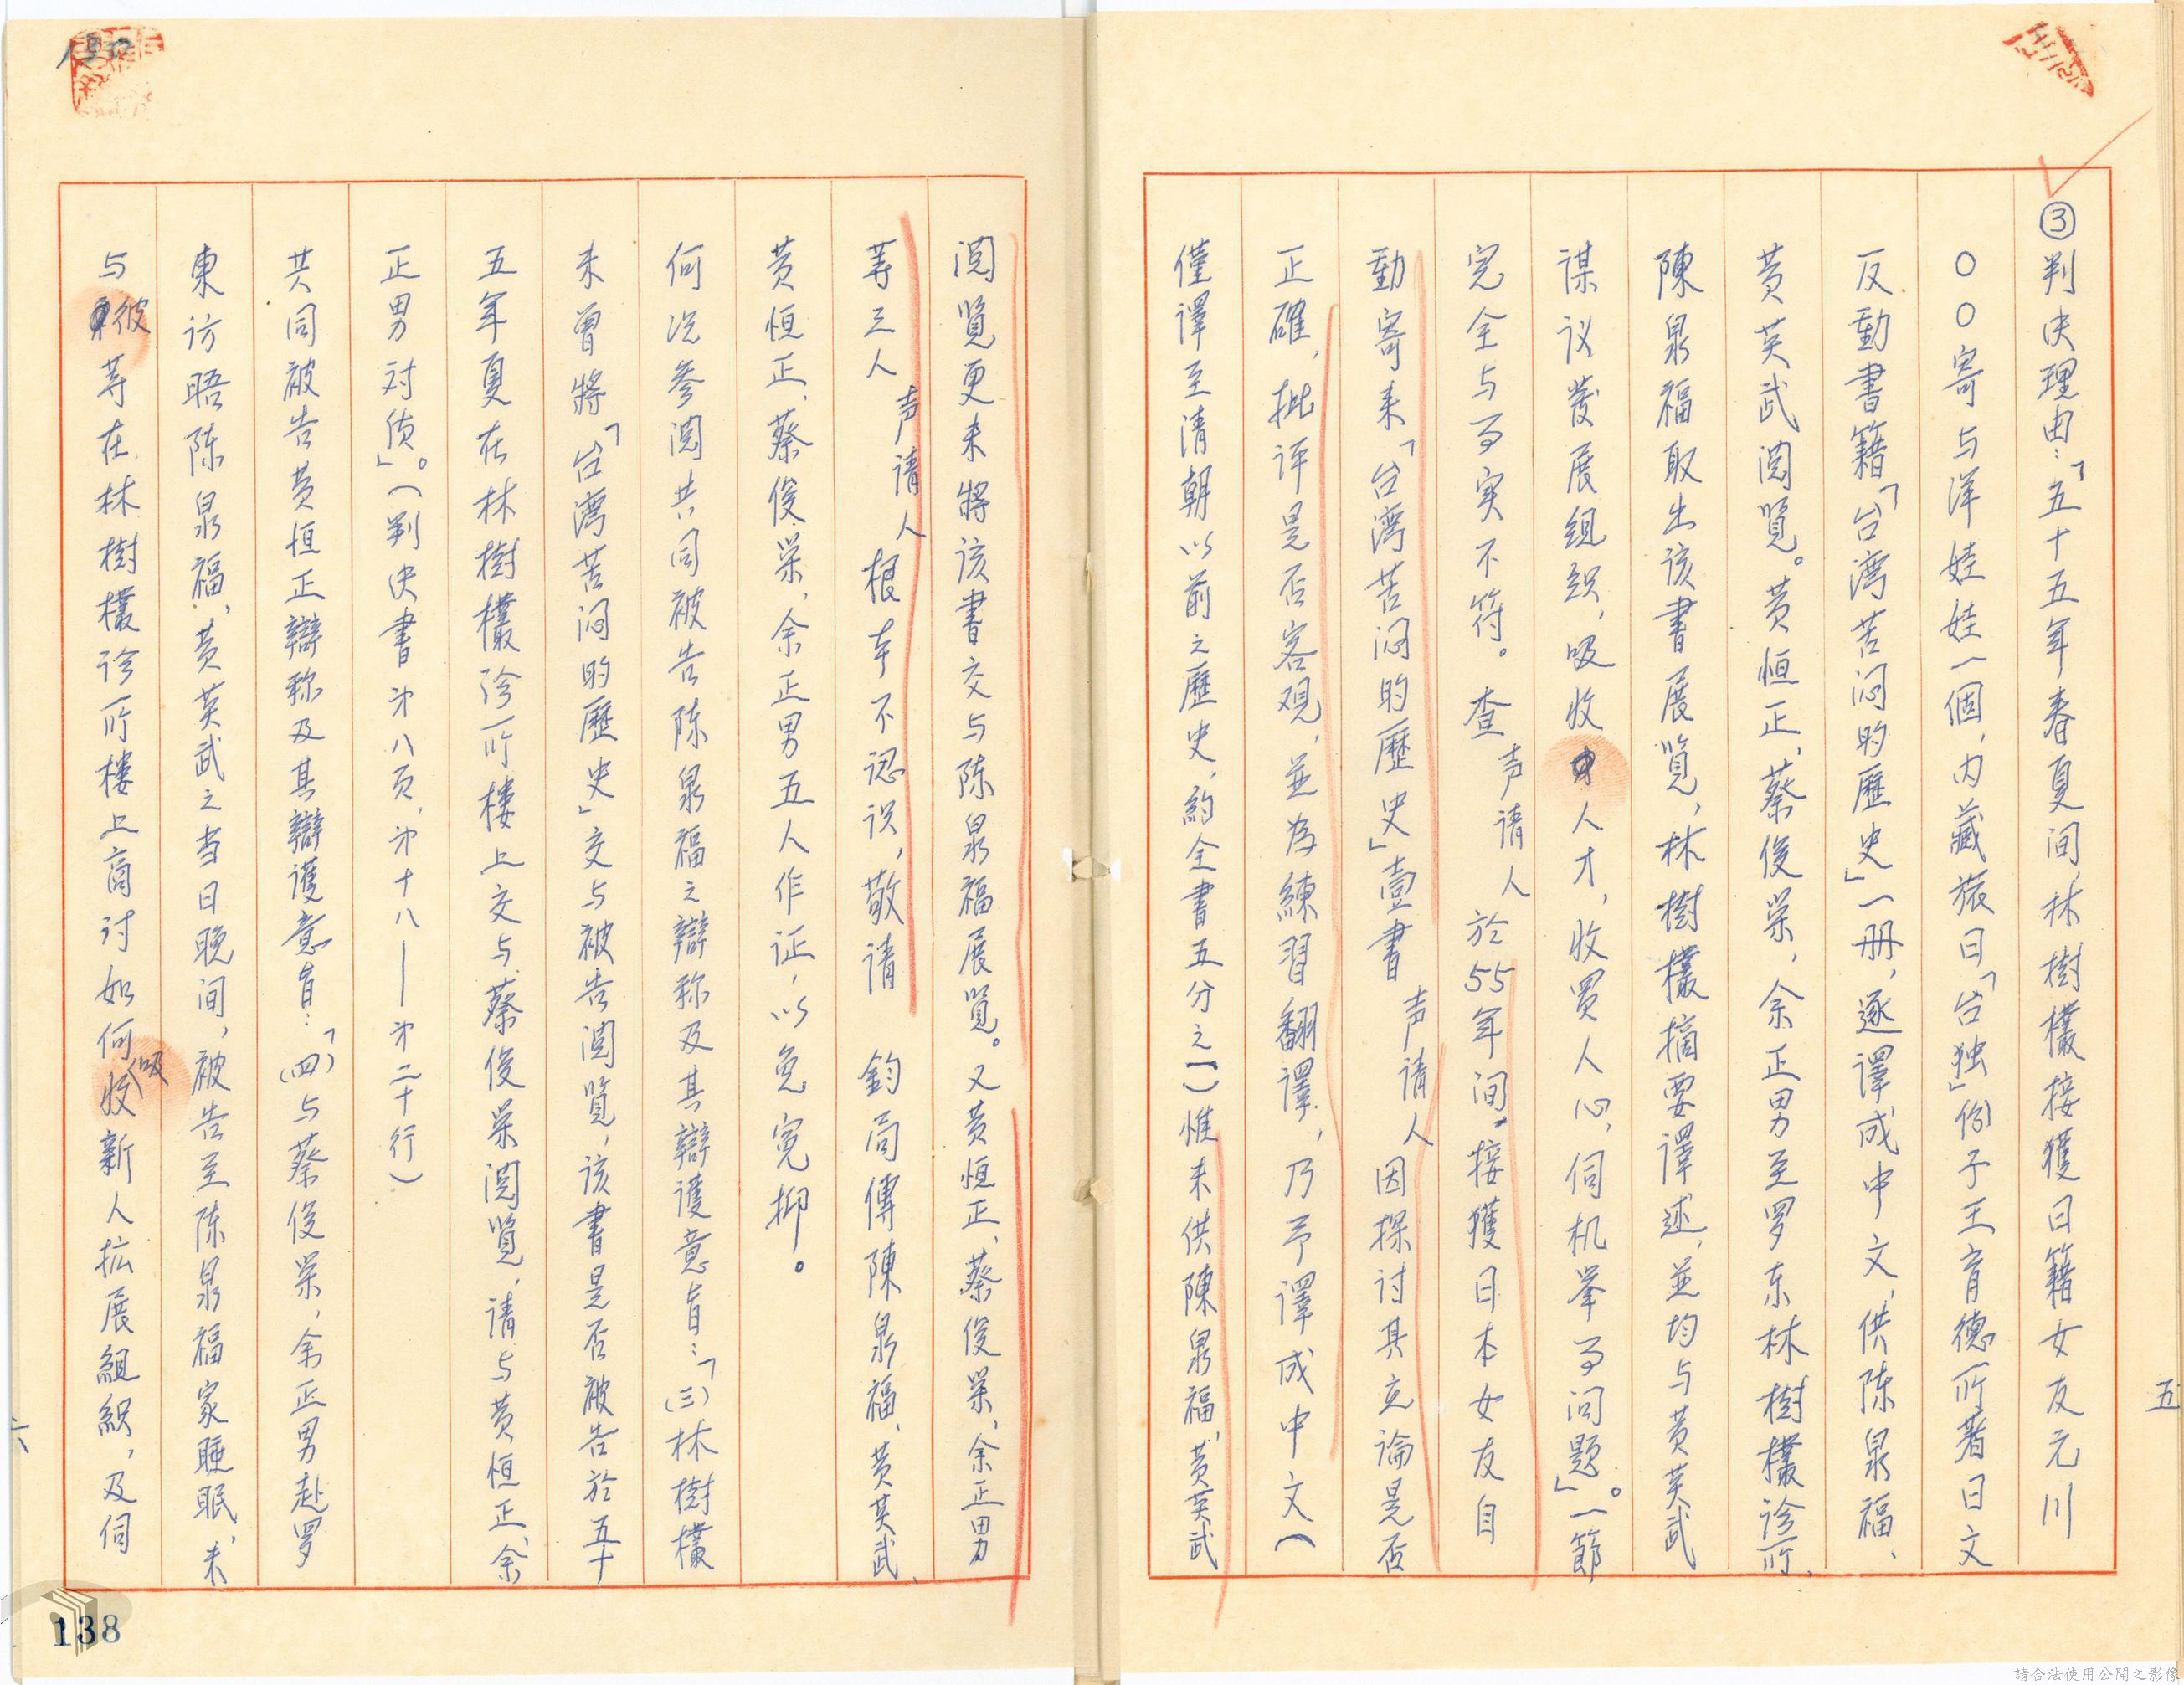 ③判决理由：「五十五年春夏间，林樹欉接獲日籍女友元川
〇〇寄与洋娃娃一個，内藏旅日「台独」份子王育德所著日文
反動書籍「台湾苦闷的歷史」一册，逐譯成中文，供陈泉福、
黄英武閲覽。黄恒正、蔡俊荣，余正男至罗东林樹欉诊所，
陳泉福取出该書展览，林樹欉摘要譯述，並均与黄英武
谋议发展组织，吸收人才，收買人心，伺机举事问题」。一節
完全与事实不符。查声请人於55年间接獲日本女友自
動寄来「台湾苦闷的歷史」壹書声请人因探討其立論是否
正確，批评是否客观，並為練習翻譯，乃予譯成中文（
僅譯至清朝以前之歷史，約全書五分之一）惟未供陳泉福、黄英武
閲覽更未將该書交与陈泉福展覽。又黄恒正、蔡俊荣、余正男
等三人声请人根本不認识，敬请 鈞局傳陳泉福、黄英武、
黄恒正、蔡俊荣，余正男五人作证，以免冤抑。
何况参閲共同被告陈泉福之辯称及其辯護意旨：「（三）林樹欉
未曾將「台湾苦闷的歷史」交与被告閲覽，该書是否被告於五十
五年夏在林樹欉诊所樓上交与蔡俊荣閲覽，请与黄恒正、余
正男对质」。（判决書第八页，第十八——第二十行）
共同被告黄恒正辯称及其辯護意旨：「（四）与蔡俊荣，余正男赴罗
東访晤陈泉福，黄英武之当日晚间，被告至陈泉福家睡眠，未
与彼等在林樹欉诊所樓上商讨如何吸收新人拡展組織，及伺
五
六
138
請合法使用公開之影像